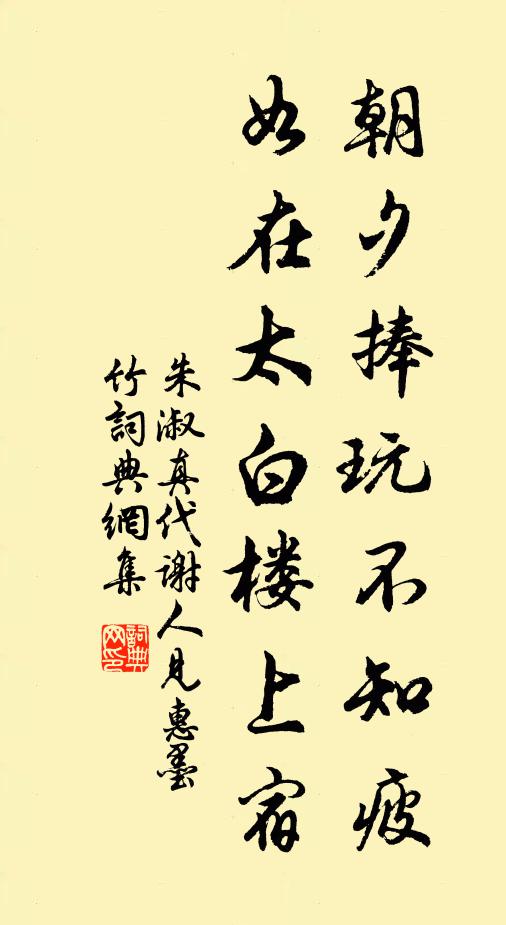 朝夕捧玩不知疲
如在太白楼上宿
朱淑真代谢人見惠墨
竹詞典網集
詞典
网印